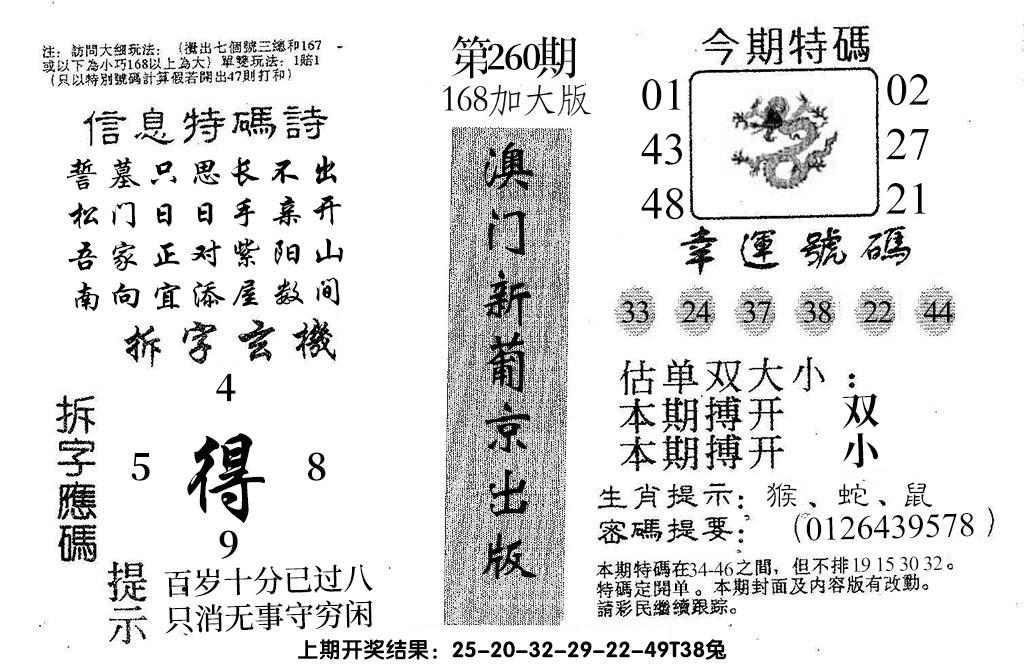 注：訪問大细玩法：（攪出七個號三總和167
或以下為小巧168以上為大）單雙玩法：1賠1
（只以特別號碼計算假若開出47則打和）
信息特碼詩
誓墓只思长不出
松门日日手亲开
吾家正对紫阳山
南向宜添屋数间
拆字玄機
拆字應碼
4
5 得 8
9
提示
百岁十分已过八
只消无事守穷闲
第260期
168加大版
澳门新葡京出版
今期特碼
01 02
43 27
48 21
幸運號碼
33 24 37 38 22 44
估单双大小：
本期搏开 双
本期搏开 小
生肖提示：猴、蛇、鼠
密碼提要：（0126439578）
本期特碼在34-46之間，但不排19 15 30 32。
特碼定開单。本期封面及内容版有改動。
請彩民繼續跟踪。
上期开奖结果：25-20-32-29-22-49T38兔